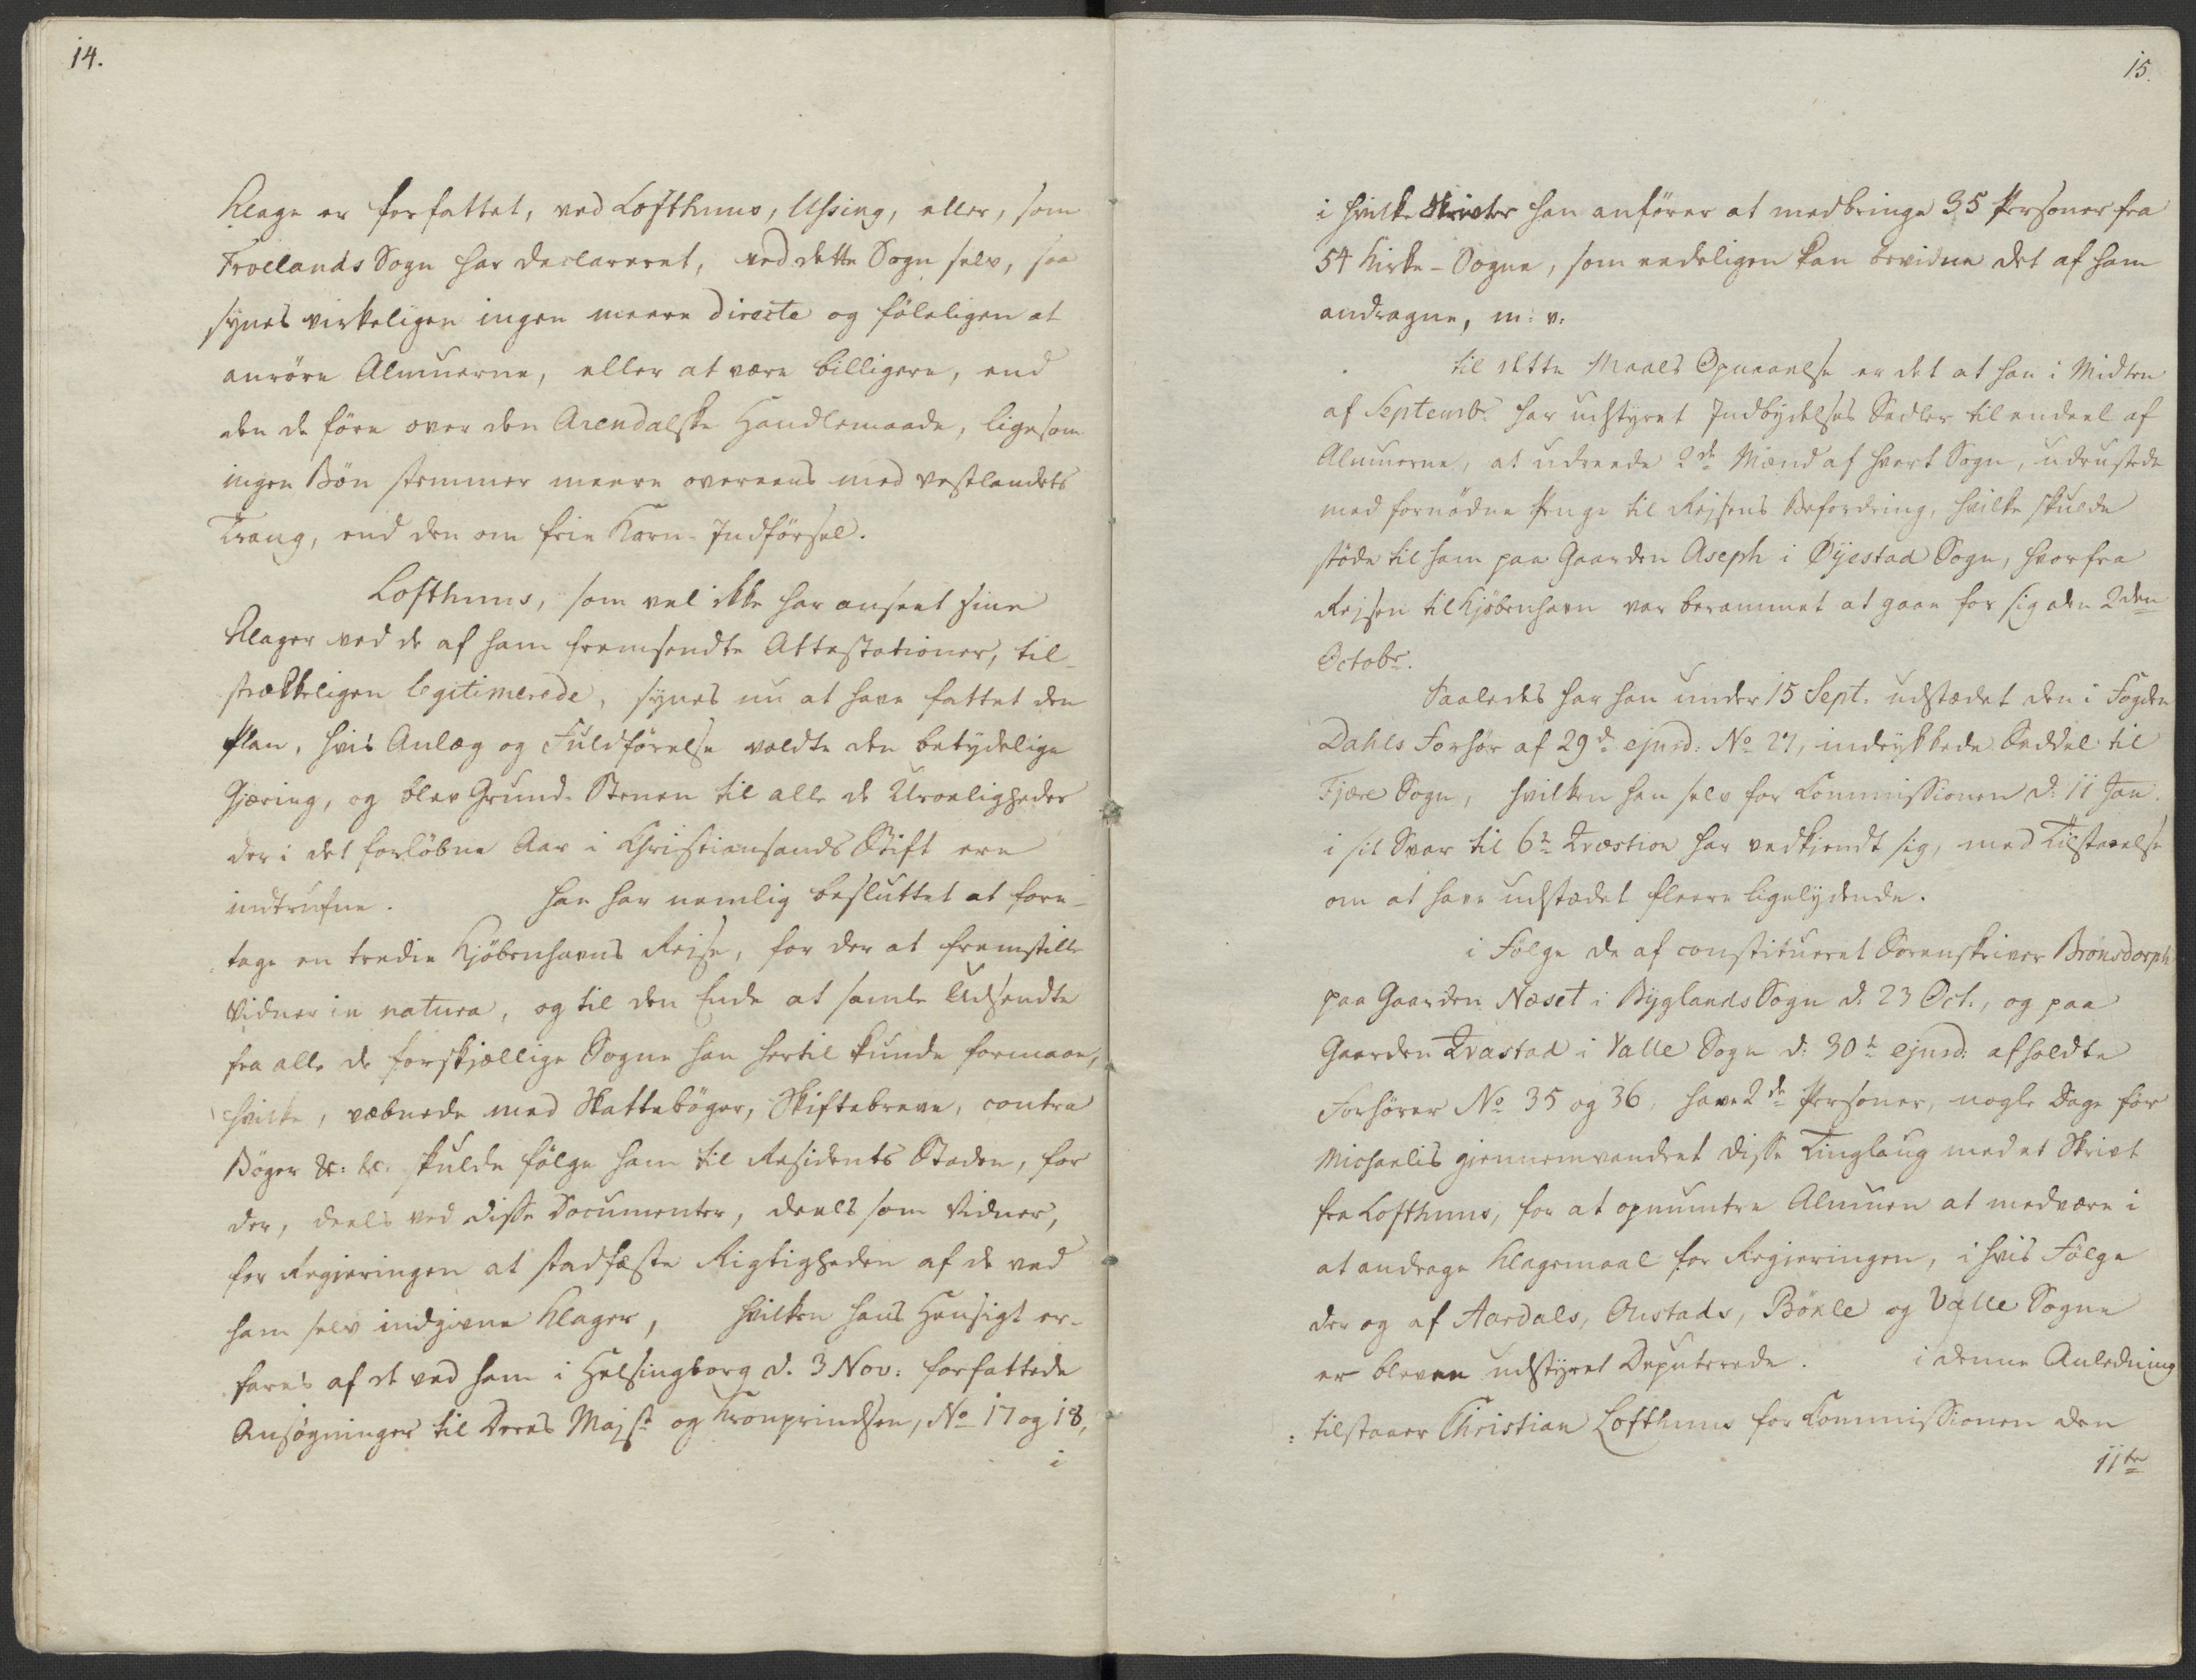 14.
Klage er forfattet, ved Lofthuus, Ussing, eller, som
Froelands Sogn har declareret, ved dette Sogn selv, saa
synes virkeligen ingen meere directe og föleligen at
anröre Almuerne, eller at være billigere, end
den de före over den Arendalske Handlemaade, ligesom
ingen Bön stemmer meere overeens med Vestlandets
Trang, end den om frie Korn-Indförsel.
Lofthuus, som vel ikke har anseet sine
Klager ved de af ham fremsendte Attestationer, til-
strækkeligen legitimerede, synes nu at have fattet den
Plan, hvis Anlæg og Fuldförelse voldte den betydelige
Gjæring, og blev Grund-Stenen til alle de Uroeligheder
der i det forlöbne Aar i Christiansands Stift ere
indtrufne. Han har nemlig besluttet at fore-
tage en tredie Kjöbenhavns Rejse, for der at fremstille
Vidner in natura, og til den Ende at samle Udsendte
fra alle de forskjællige Sogne han hertil kunde formaae,
hvilke, væbnede med Skattebøger, Skiftebreve, contra
Böger &c: &c: skulde fölge ham til Residents Staden, for
der, deels ved disse Documenter, deels som Vidner,
for Regjeringen at stadfæste Rigtigheden af de ved
ham selv indgivne Klager, hvilken hans Hensigt er-
fares af de ved ham i Helsingborg d. 3 Nov: forfattede
Ansøgninger til Deres Majst og Kronprindsen, No 17 og 18,
i
15.
i hvilke Skrivter han anförer at medbringe 35 Personer fra
54 Kirke-Sogne, som eedeligen kan bevidne det af ham
andragne, m: v:
til dette Maals Opnaaelse er det at han i Midten
af Septembr. har udstyret Indbydelses Sedler til endeel af
Almuerne, at udreede 2de Mænd af hvert Sogn, udrustede
med fornödne Penge til Rejsens Befordring, hvilke skulde
stöde til ham paa Gaarden Aseph i Öyestad Sogn, hvorfra
Rejsen til Kjöbenhavn var berammet at gaae for sig den 2den
Octobr.
Saaledes har han under 15 Sept. udstædet den i Fogden
Dahls Forhör af 29de ejusd: No 27, indrykkede Seddel til
Fjære Sogn, hvilken han selv for Commissionen d: 11 Jan.
i sit Svar til 6te Qvæstion har vedkjendt sig, med Tilstaaelse
om at have udstædet fleere ligelydende.
i Fölge de af constitueret Sorenskriver Brønsdorph
paa Gaarden Næset i Byglands Sogn d. 23 Oct., og paa
Gaarden Qvastad i Valle Sogn d: 30te ejusd: afholdte
Forhörer No 35 og 36, have 2de Personer, nogle Dage för
Michaelis gjennemvandret disse Tinglaug med et Skrivt
fra Lofthuus, for at opmuntre Almuen at medvære i
at andrage Klagemaal for Regjeringen, i hvis Fölge
der og af Aardals, Oustads, Bökle og Valle Sogne
er bleven udstyret Deputerede. i denne Anledning
tilstaaer Christian Lofthuus for Commissionen den
11te